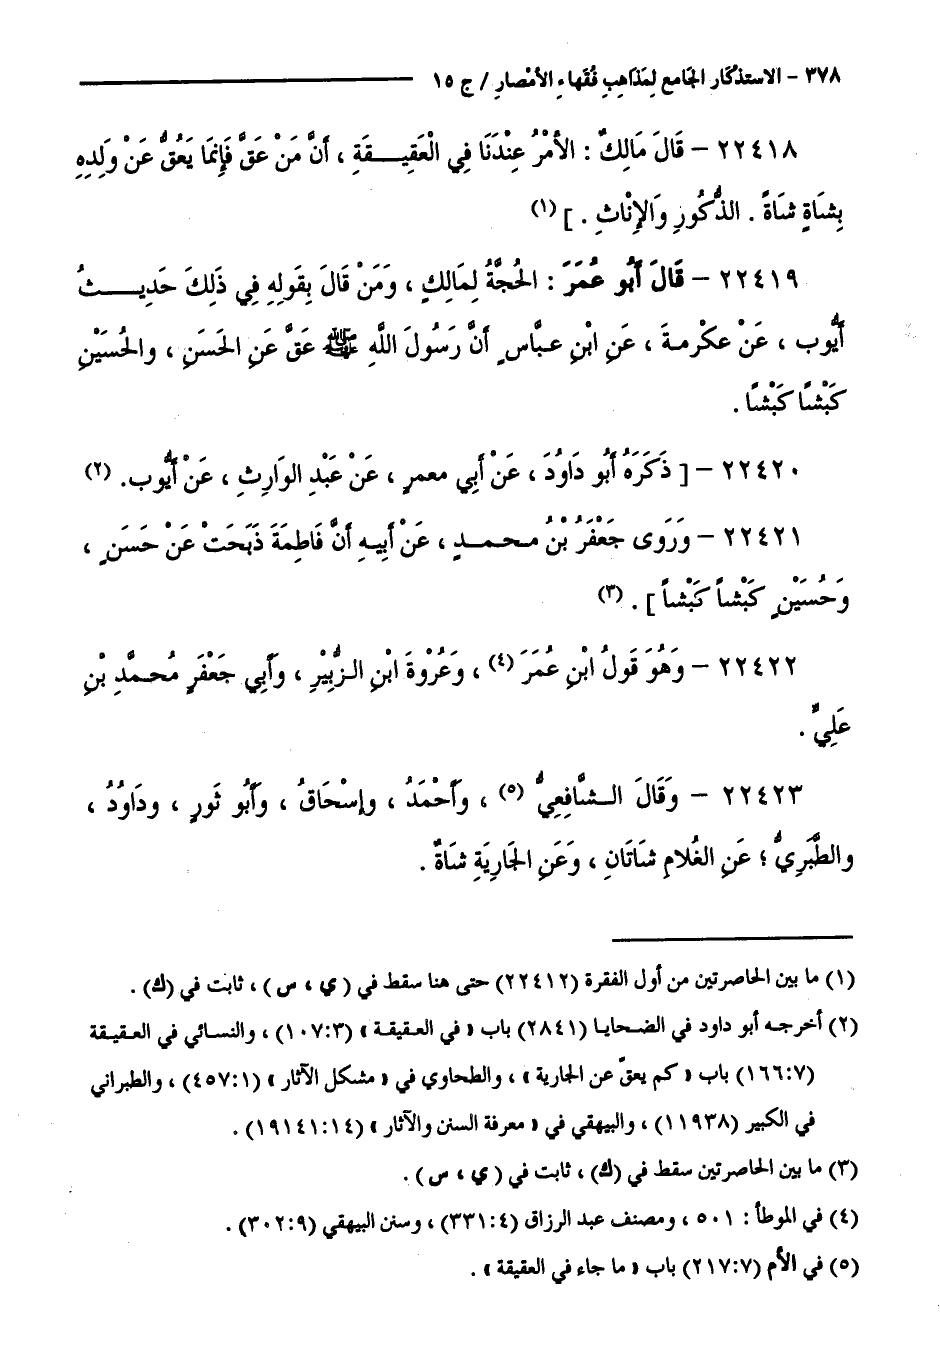 ٣٧٨ – الاستذكار الجامع لمذاهب فُقهاء الأمصار / ج ١٥
٢٢٤١٨ – قَالَ مَالِكٌ : الأمْرُ عِنْدَنَا فِي الْعَقِيقَةِ ، أَنَّ مَنْ عَقَّ فَإِنمَا يَعُقُّ عَنْ وَلَدِهِ
بِشَاةٍ شاةً . الذُّكُورِ وَالإِنْاثِ . ] (١)
٢٢٤١٩ – قَالَ أَبُو عُمَرَ : الحُجَّةُ لِمَالِكٍ ، وَمَنْ قَالَ بِقَولِهِ فِي ذَلِكَ حَدِيثُ
أَيُّوب ، عَنْ عكْرمةَ ، عَنِ ابْنِ عبَّاسٍ أَنَّ رَسُولَ اللَّهِ ﷺ عَقَّ عَنِ الحَسَنِ ، والحُسَيْنِ
كَبْشًا كَبْشًا .
٢٢٤٢٠ – [ ذَكَرَهُ أَبُو دَاوُدَ ، عَنْ أَبِي معمرٍ ، عَنْ عَبْدِ الوَارِثِ ، عَنْ أَيُّوب. (٢)
٢٢٤٢١ – وَرَوَى جَعْفَرُ بْنُ محمدٍ ، عَنْ أَبِيهِ أَنَّ فَاطِمَةَ ذَبَحَتْ عَنْ حَسَنٍ ،
وَحُسَيْنٍ كَبْشاً كَبْشاً ] . (٣)
٢٢٤٢٢ – وَهُوَ قَولُ ابْنِ عُمَرَ (٤) ، وَعُرْوْةَ ابْنِ الزُّبِيْرِ ، وَأَبِي جَعْفَرٍ مُحمَّدِ بْنِ
عَلِيٍّ .
٢٢٤٢٣ – وَقَالَ الشَّافِعِيُّ (٥) ، وَأَحْمَدُ ، وإِسْحَاقُ ، وَأَبُو ثَورٍ ، ودَاوُدُ ،
والطَّبَرِيُّ ؛ عَنِ الغُلامِ شَاتَانِ ، وَعَنِ الجَارِيَةِ شاةٌ .
(١) ما بين الحاصرتين من أول الفقرة (٢٢٤١٢) حتى هنا سقط في ( ي ، س ) ، ثابت في (ك) .
(٢) أخرجه أبو داود في الضحايا (٢٨٤١) باب « في العقيقة » (١٠٧:٣) ، والنسائي في العقيقة
(١٦٦:٧) باب « كم يعقّ عن الجارية » ، والطحاوي في « مشكل الآثار » (٤٥٧:١) ، والطبراني
في الكبير (١١٩٣٨) ، والبيهقي في « معرفة السنن والآثار » (١٩١٤١:١٤) .
(٣) ما بين الحاصرتين سقط في (ك) ، ثابت في ( ي ، س ) .
(٤) في الموطأ : ٥٠١ ، ومصنف عبد الرزاق (٣٣١:٤) ، وسنن البيهقي (٣٠٢:٩) .
(٥) في الأم (٢١٧:٧) باب « ما جاء في العقيقة » .